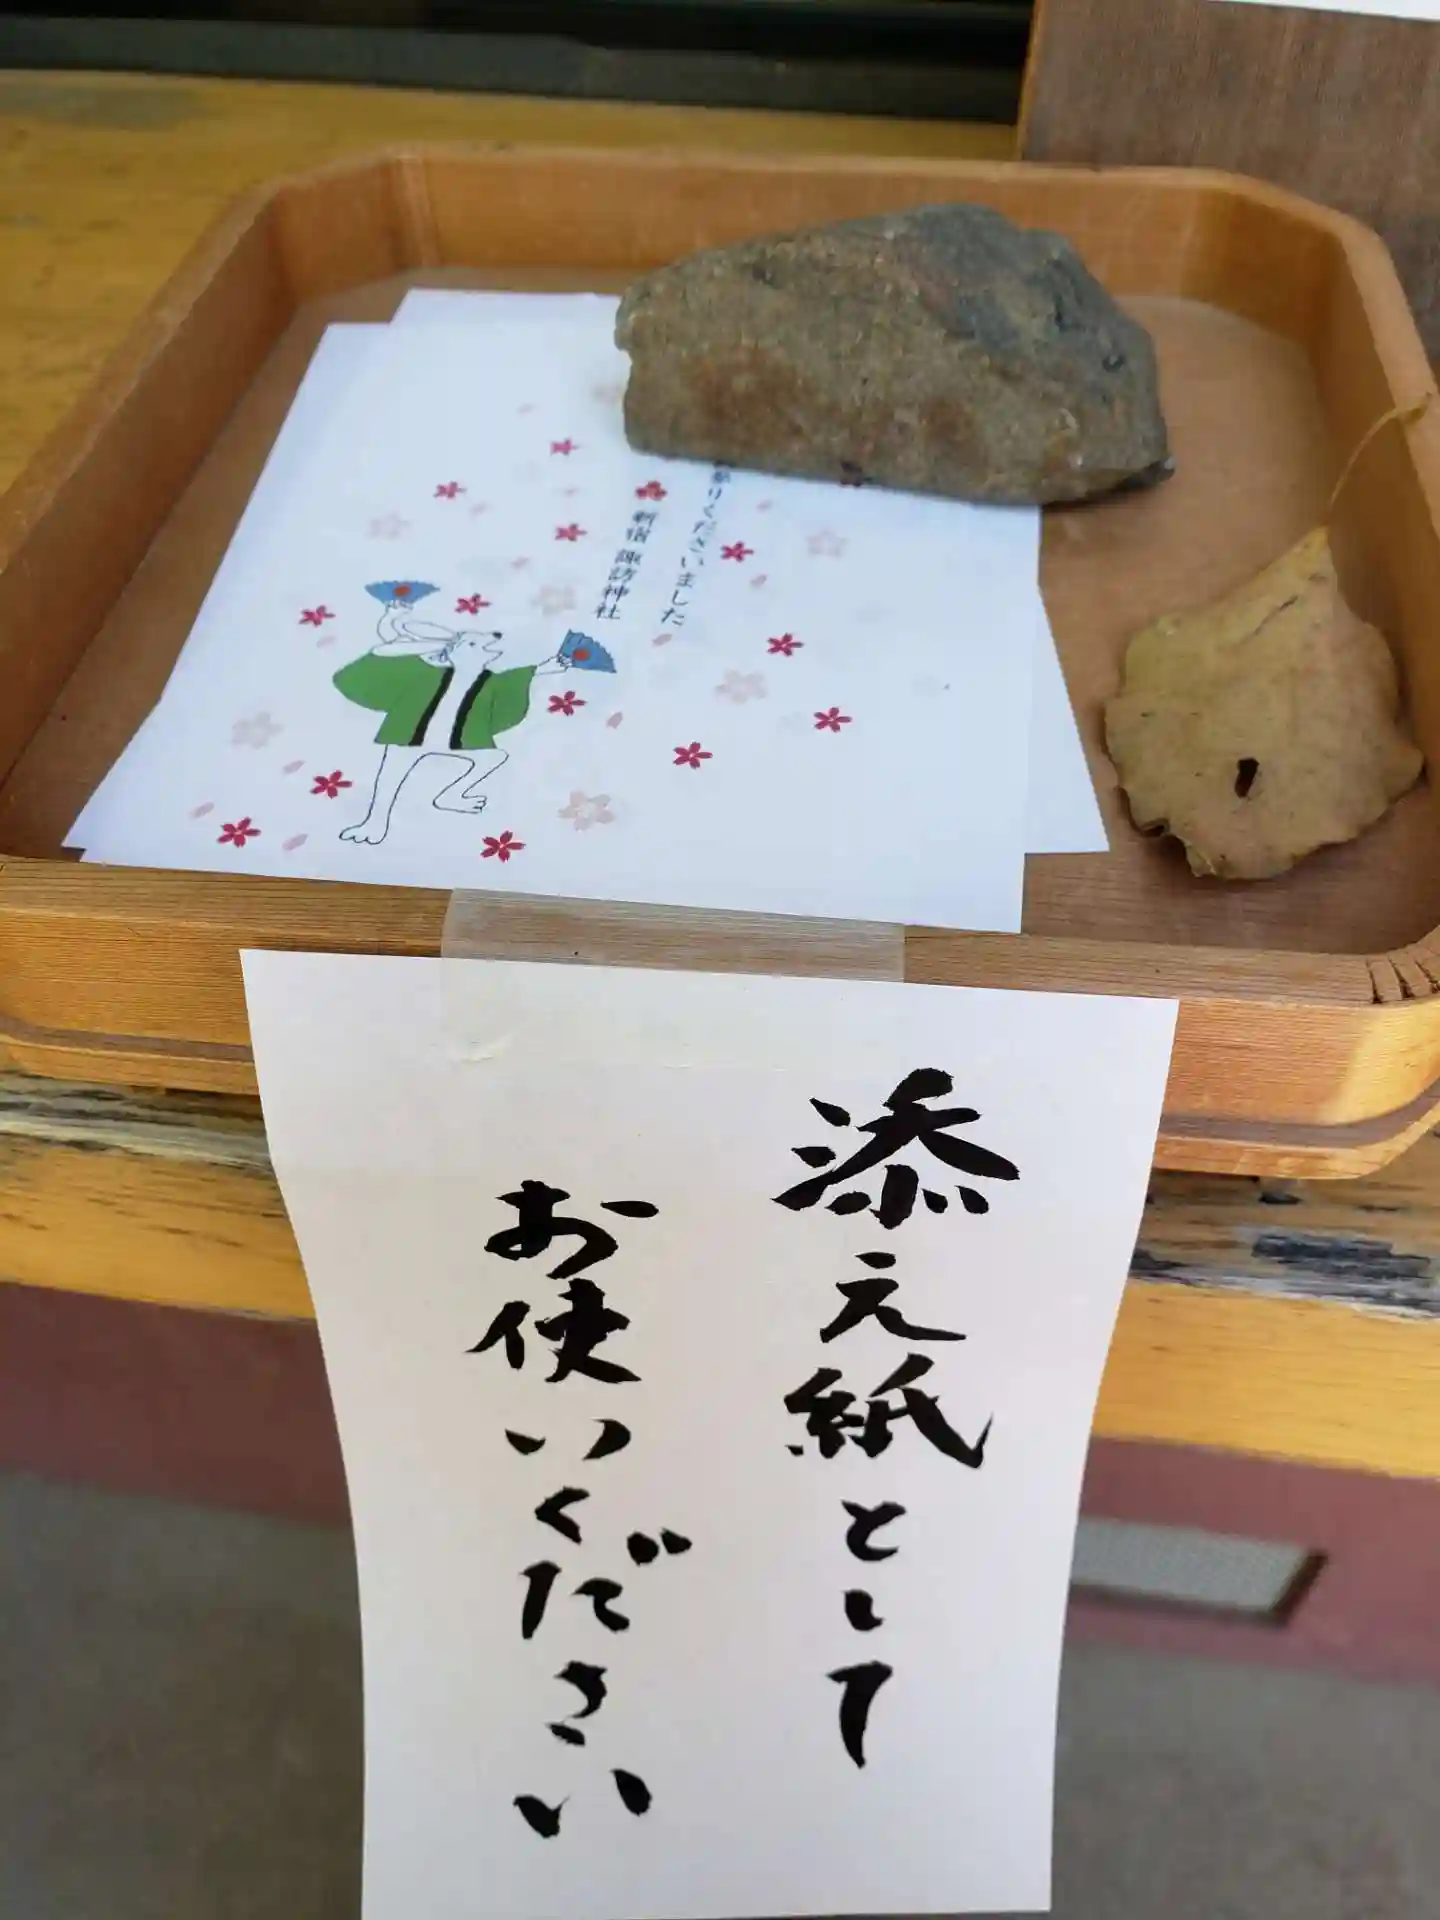 りくださいました
新宿 諏訪神社
添え紙として
お使いください